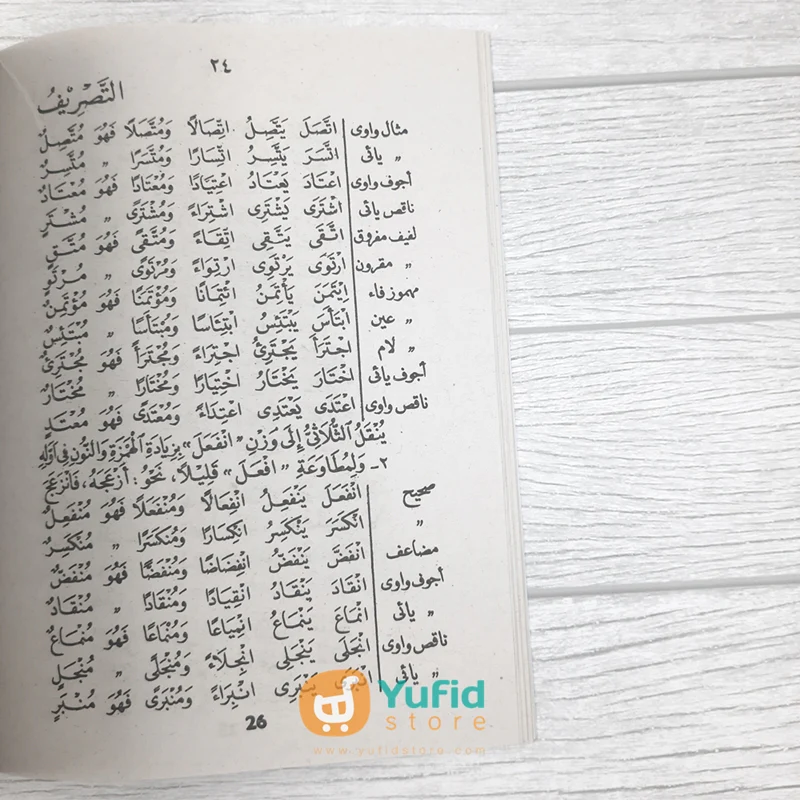 ٢٤
التَّصْرِيْفُ
مثال واوى اتَّصَلَ يَتَّصِلُ اتِّصَالًا وَمُتَّصَلًا فَهُوَ مُتَّصِلٌ
〃 يائى اتَّسَرَ يَتَّسِرُ اتِّسَارًا وَمُتَّسَرًا 〃 مُتَّسِرٌ
أجوف واوى اعْتَادَ يَعْتَادُ اعْتِيَادًا وَمُعْتَادًا فَهُوَ مُعْتَادٌ
ناقص يائى اشْتَرَى يَشْتَرِى اشْتِرَاءً وَمُشْتَرًى 〃 مُشْتَرٍ
لفيف مفروق اتَّقَى يَتَّقِى اتِّقَاءً وَمُتَّقًى فَهُوَ مُتَّقٍ
〃 مقرون ارْتَوَى يَرْتَوِى ارْتِوَاءً وَمُرْتَوًى 〃 مُرْتَوٍ
مهموز فاء ايْتَمَنَ يَأْتَمِنُ ائْتِمَانًا وَمُؤْتَمَنًا فَهُوَ مُؤْتَمِنٌ
〃 عين ابْتَأَسَ يَبْتَئِسُ ابْتِئَاسًا وَمُبْتَأَسًا 〃 مُبْتَئِسٌ
〃 لام اجْتَرَأَ يَجْتَرِئُ اجْتِرَاءً وَمُجْتَرَأً فَهُوَ مُجْتَرِئٌ
أجوف يائى اخْتَارَ يَخْتَارُ اخْتِيَارًا وَمُخْتَارًا 〃 مُخْتَارٌ
ناقص واوى اعْتَدَى يَعْتَدِى اعْتِدَاءً وَمُعْتَدًى فَهُوَ مُعْتَدٍ
يُنْقَلُ الثُّلَاثِيُّ إِلَى وَزْنِ "انْفَعَلَ" بِزِيَادَةِ الْهَمْزَةِ وَالنُّونِ فِى أَوَّلِهِ
٢- وَلِمُطَاوَعَةِ "افْعَلَ" قَلِيْلًا، نَحْوُ: أَزْعَجَهُ، فَانْزَعَجَ
صحيح انْفَعَلَ يَنْفَعِلُ انْفِعَالًا وَمُنْفَعَلًا فَهُوَ مُنْفَعِلٌ
〃 انْكَسَرَ يَنْكَسِرُ انْكِسَارًا وَمُنْكَسَرًا 〃 مُنْكَسِرٌ
مضاعف انْفَضَّ يَنْفَضُّ انْفِضَاضًا وَمُنْفَضًّا فَهُوَ مُنْفَضٌّ
أجوفى واوى انْقَادَ يَنْقَادُ انْقِيَادًا وَمُنْقَادًا 〃 مُنْقَادٌ
〃 يائى انْمَاعَ يَنْمَاعُ انْمِيَاعًا وَمُنْمَاعًا فَهُوَ مُنْمَاعٌ
ناقص واوى انْجَلَى يَنْجَلِى انْجِلَاءً وَمُنْجَلًى 〃 مُنْجَلٍ
〃 يائى انْبَرَى يَنْبَرِى انْبِرَاءً وَمُنْبَرًى فَهُوَ مُنْبَرٍ
26
Yufid
store
www.yufidstore.com